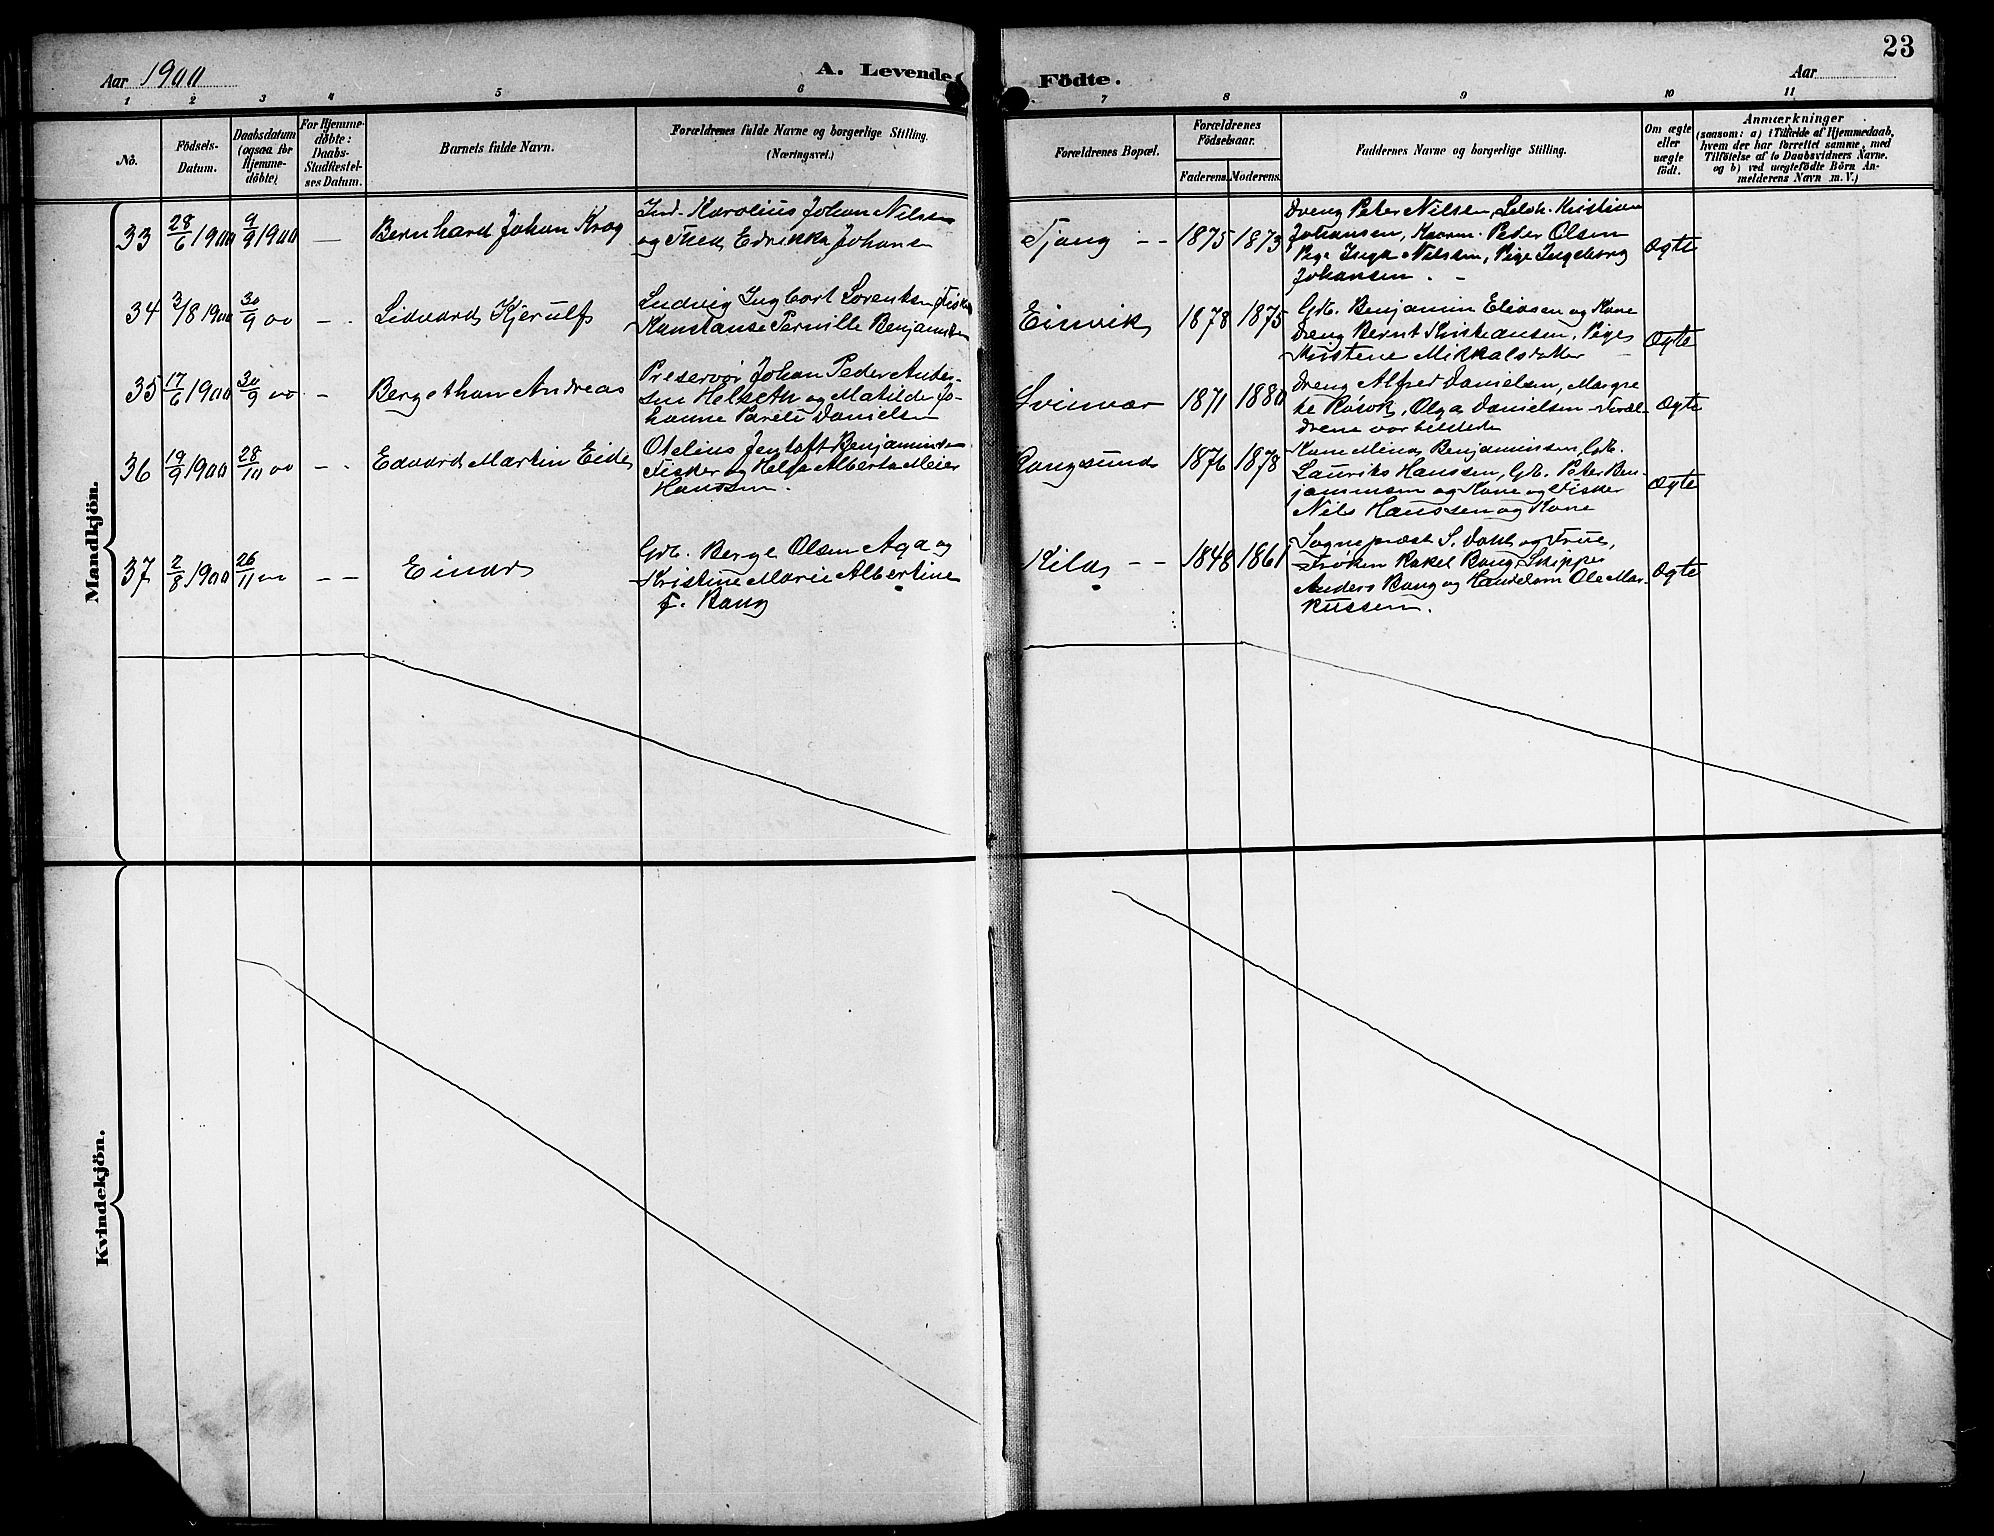 23
Aar 1900
A. Levende
Födte.
Aar
1 2 3 4 5 6 7 8 9 10 11
No.
Födsels-
Datum.
Daabsdatum
(ogsaa for
Hjemme-
døbte)
For Hjemme-
døbte:
Daabs-
Stadfæstel-
ses Datum.
Barnets fulde Navn.
Forældrenes fulde Navne og borgerlige Stilling.
(Næringsvei.)
Forældrenes Bopæl.
Forældrenes
Födselsaar.
Faderens. Moderens.
Faddernes Navne og borgerlige Stilling.
Om ægte
eller
uægte
födt.
Anmærkninger
(saasom: a) i Tilfælde af Hjemmedaab,
hvem der har forrettet samme, med
Tilföielse af to Daabsvidners Navne.
og b) ved uægtefödte Börn An-
melderens Navn m. V.)
Mandkjön.
33 28/6 1900 9/9 1900 — Bernhard Johan Krog
Ind. Karolius Johan Nilsen
og Thea Edrikka Johane
Tjong - - 1875 1873
Dreng Peter Nilsen, Kristian
Johansen, Peter Olsen
Pige Inga Nilsen, Pige Ingeborg
Johansen. -
Ægte
34 3/8 1900 30/9 00 - - Lidvard Kjerulf
Ludvig Ingbart Lorentsen Fisker
Konstanse Pernille Benjaminsen
Eimvik 1878 1875
Gbr. Benjamin Eliasen og Kone
Dreng Bernt Kristiansen, Pige
Kristene Mikkalsdatter -
Ægte
35 17/6 1900 30/9 00 - Bergethon Andreas
Preservør Johan Peder Ander-
sen Helseth og Matilde Jo-
hanne Pareli Danielsen
Svinvær 1871 1880
Dreng Alfred Danielsen, Margre
te Røsok, Olga Danielsen - Foræl-
drene var tilstede
Ægte
36 19/9 1900 28/10 00 - - Edvard Martin Eide
Otelius Jentoft Benjaminsen
Fisker og Helga Alberta Meier
Hanssen.
Rangsund 1876 1878
Kone Mina Benjaminsen, Gbr.
Lauriks Hanssen, Gbr. Peter Ben-
jaminsen og Kone og Fisker
Nils Hanssen og Kone
Ægte
37 2/8 1900 26/11 00 - - Einar
Gbr. Berge Olsen Aga og
Kristine Marie Albertine
f. Bang
Kila - - 1848 1861
Sogneprest S. Dahl og Frue,
Frøken Rakel Bang, Skipper
Anders Bang og Handelsm Ole Mar-
kussen.
Ægte
Kvindekjön.